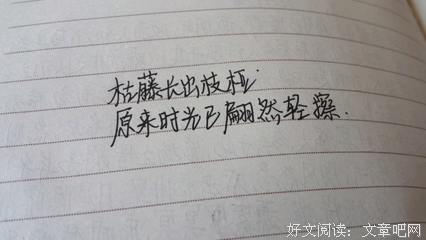 枯藤长出枝桠
原来时光已翩然轻擦.
好文阅读:文章吧网